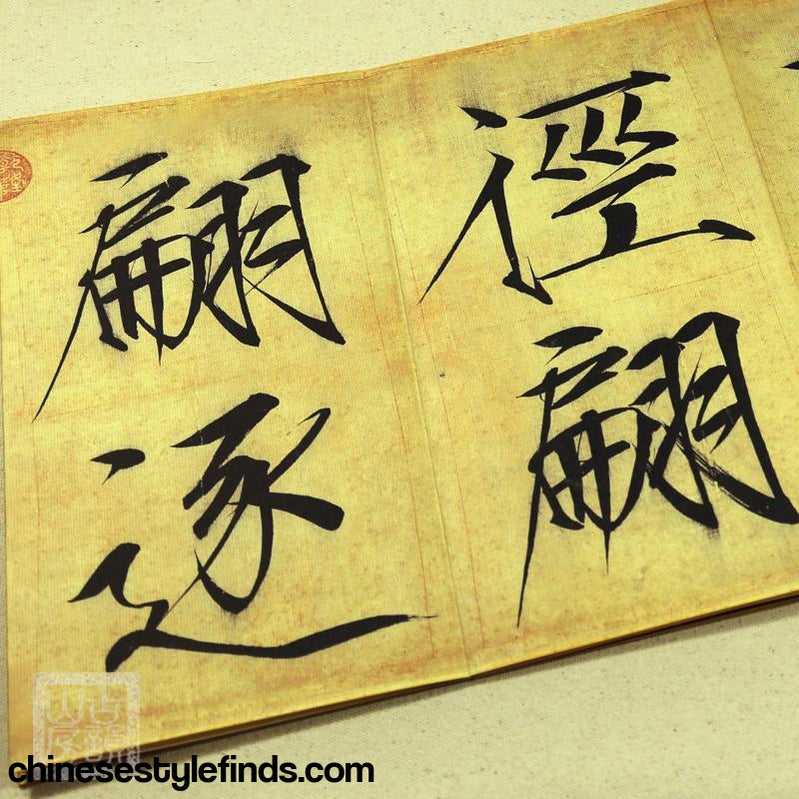 徑翩
翩逐
chinesestylefinds.com